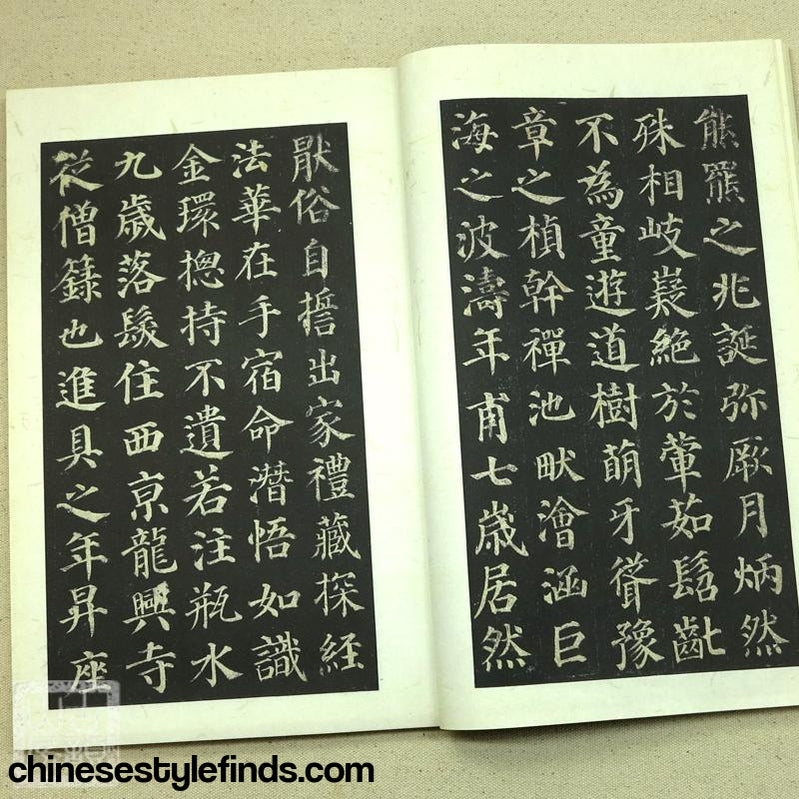 熊羆之兆誕弥厥月炳然
殊相岐嶷絶於葷茹髫齓
不為童遊道樹萌牙聳豫
章之楨幹禪池畎澮涵巨
海之波濤年甫七歳居然
猒俗自誓出家禮藏探經
法華在手宿命潛悟如識
金環揔持不遺若注瓶水
九歳落髮住西京龍興寺
從僧籙也進具之年昇座
chinesestylefinds.com